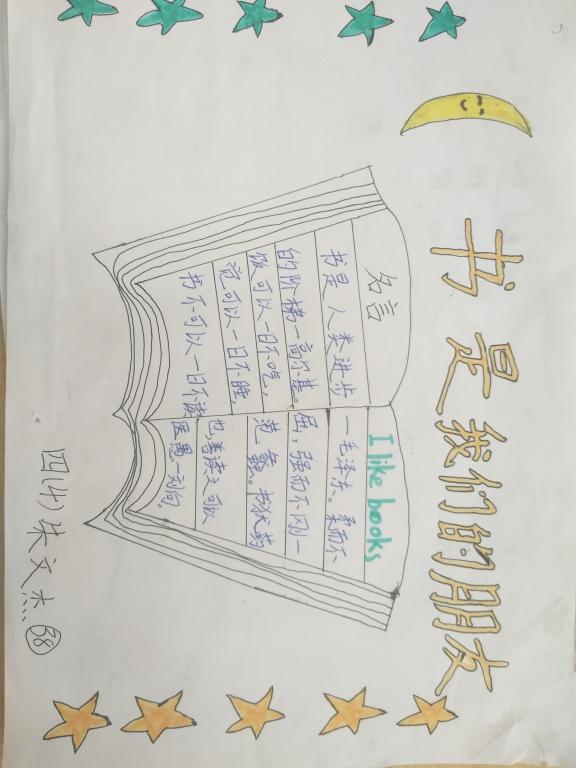 书是我们的朋友
名言
书是人类进步
的阶梯一高尔基。
饭可以一日不吃,
觉可以一日不睡
书不可以一日不读
I like books
一毛泽东。柔而不
屈,强而不刚一
范蠡。书犹药
也,善读之可以
医愚一刘向。
四(4)朱文杰 38